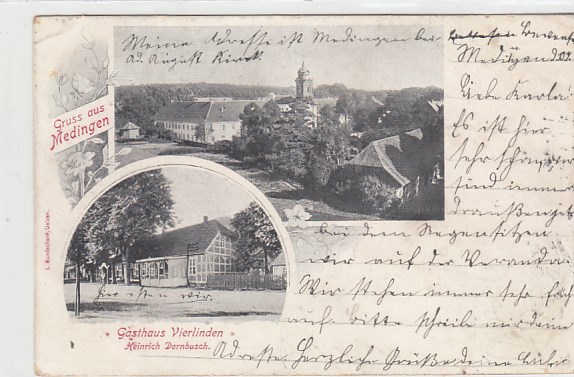 Meine Adresse ist Medingen bei
ad. August
Bevensen
Medingen d.
Liebe Karla!
Es ist hier
sehr schön, wir
sind immer
draußen, jetzt
bei dem Regen sitzen
wir auf der Veranda.
Wir stehen immer sehr früh
auf. bitte schreib mir deine
Adresse. Herzliche Grüße deine
Gruss aus
Medingen
Hier essen wir.
Gasthaus Vierlinden
Heinrich Dornbusch.